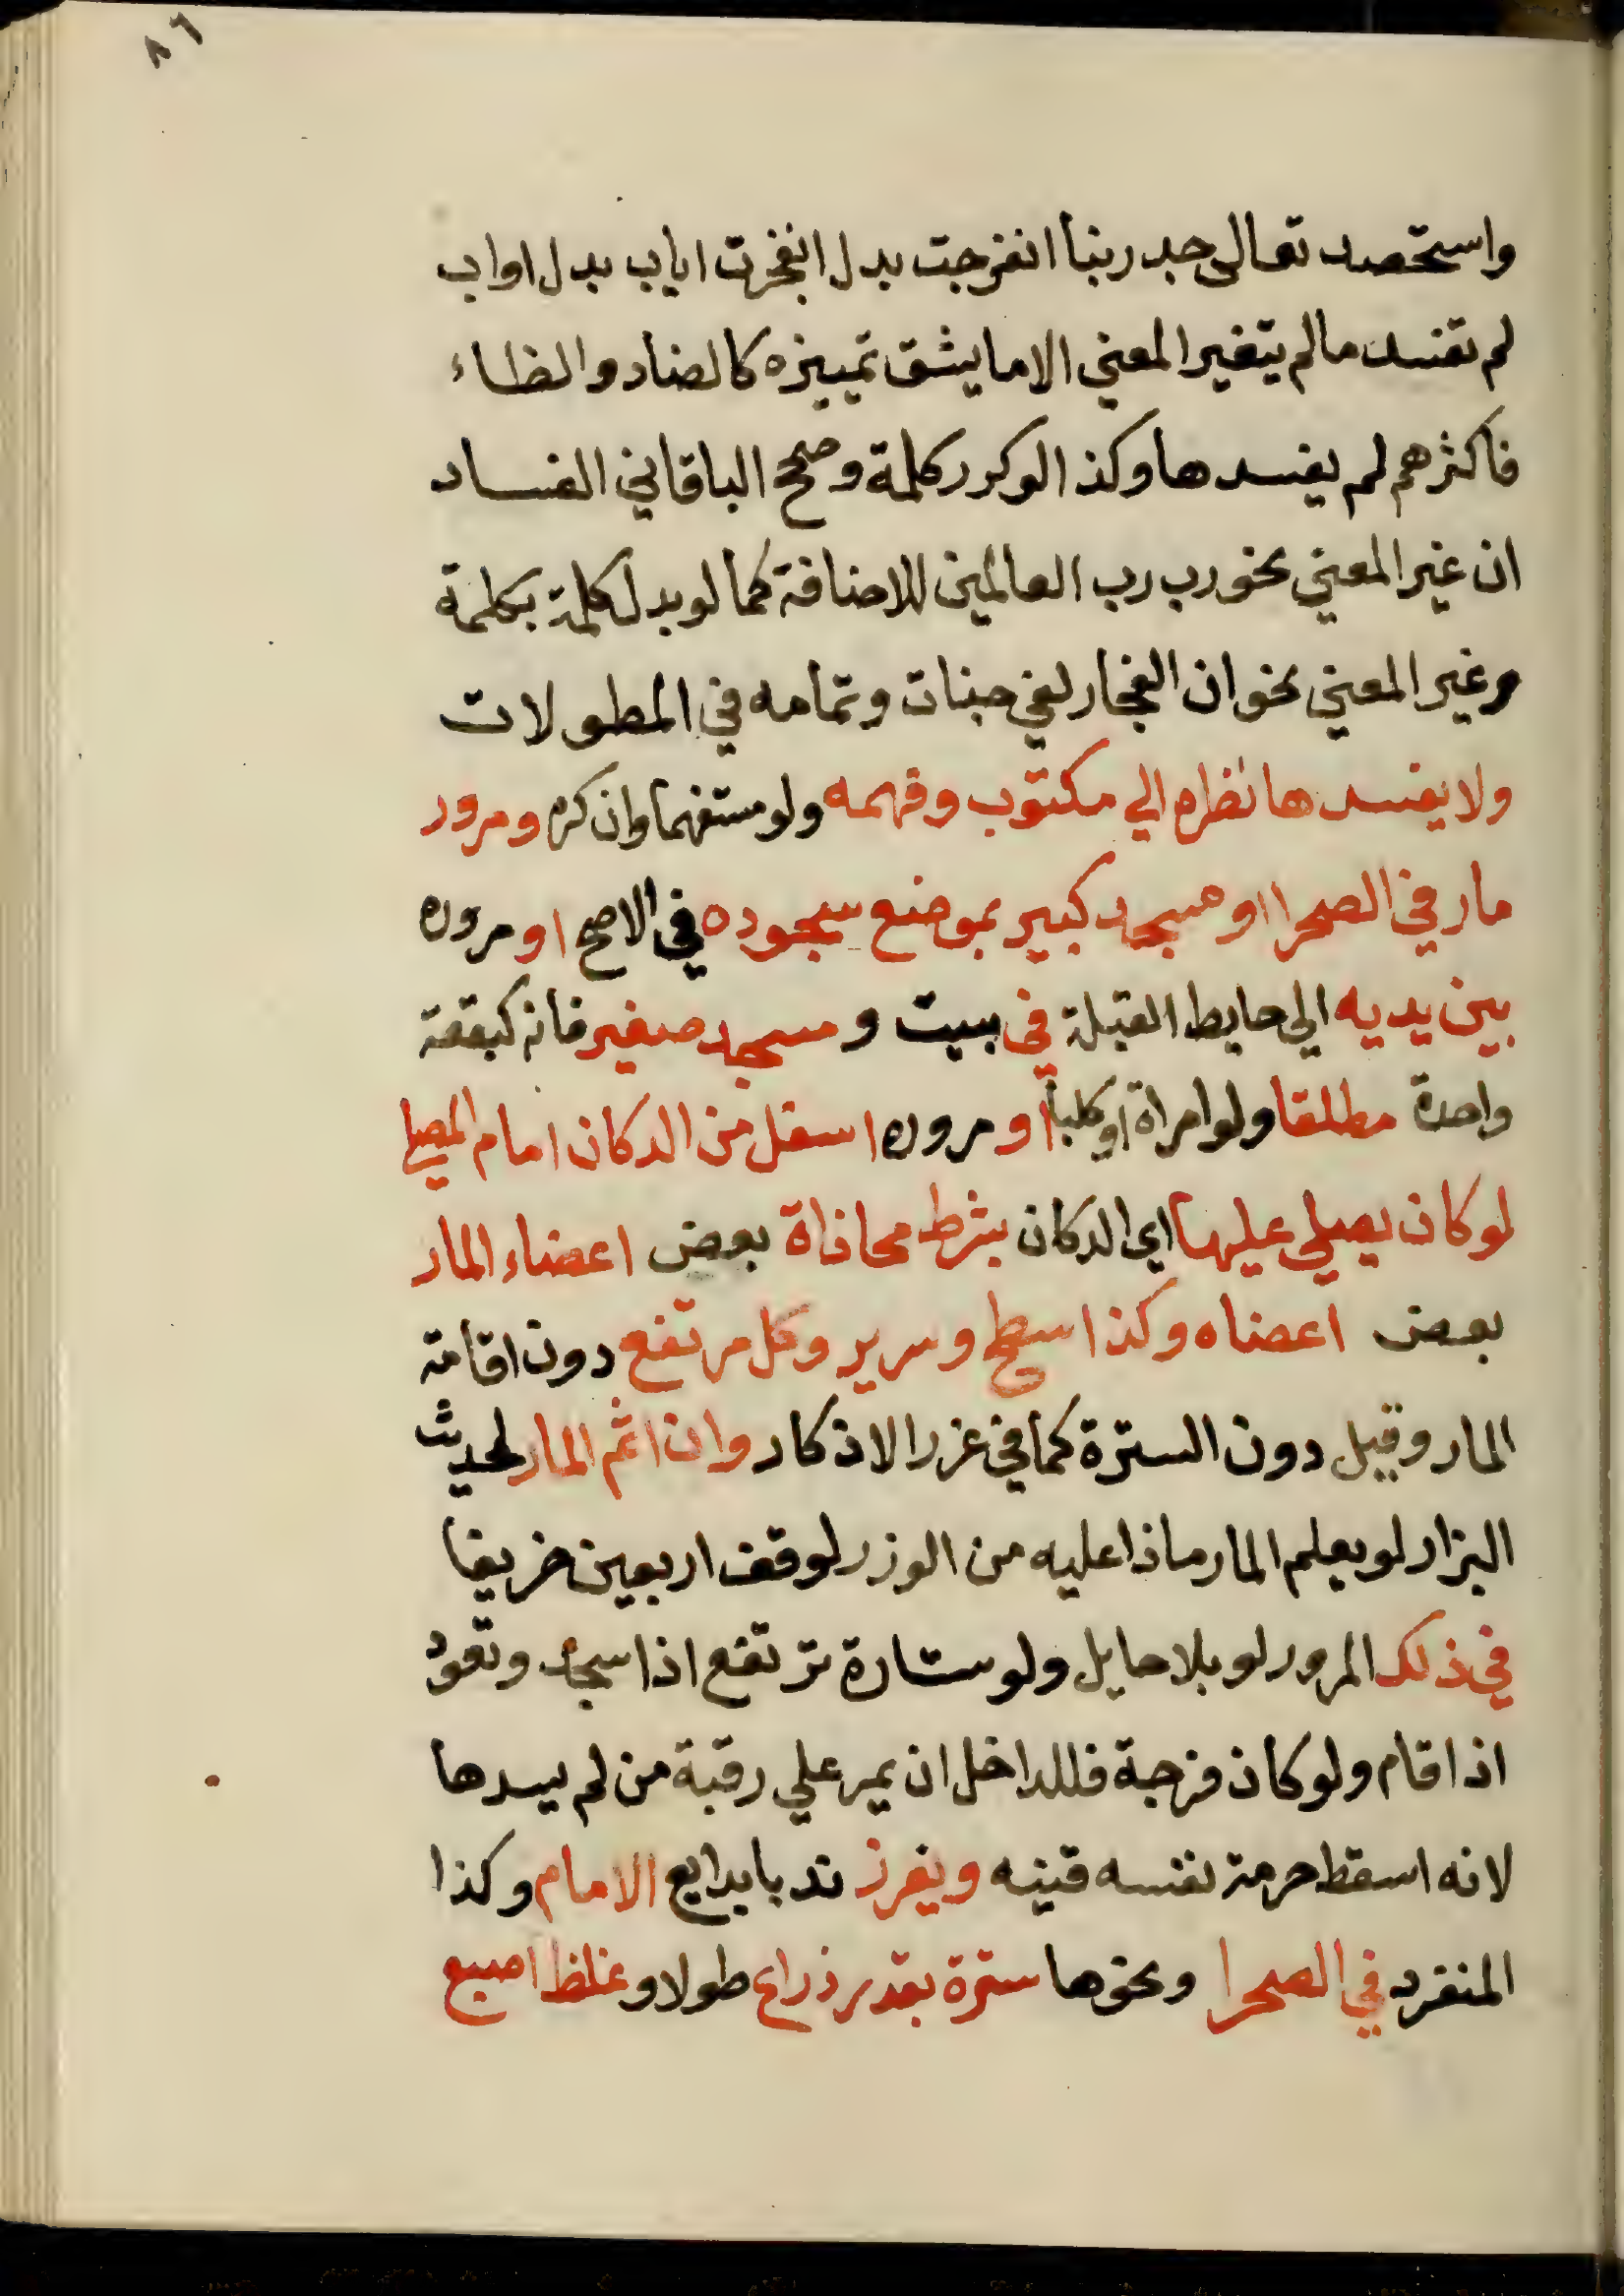 ٨٦
واستحصد تعالى جد ربنا انفرجت بدل انفجرت اياب بدل اواب
لم تفسد ما لم يتغير المعني الا ما يشق تمييزه كالضاد والظاء
فاكثرهم لم يفسدها وكذا لو كرر كلمة وصحح الباقاني الفساد
ان غير المعني نحو رب رب العالمين للاضافة كما لو بدل كلمة بكلمة
وغير المعني نحو ان الفجار لفي جنات وتمامه في المطولات
ولا يفسدها نظره الي مكتوب وفهمه ولو مستفهما وان كره ومرور
مار في الصحرا او مسجد كبير بموضع سجوده في الاصح او مروره
بين يديه الي حايط القبلة في بيت ومسجد صغير فانه كبقعة
واحدة مطلقا ولو امراة او كلبا او مروره اسفل من الدكان امام المصلي
لو كان يصلي عليها اي الدكان بشرط محاذاة بعض اعضاء المار
بعض اعضاه وكذا سطح وسرير وكل مرتفع دون اقامة
المار وقيل دون السترة كما في غرر الاذكار وان اثم المار لحديث
البزار لو يعلم المار ماذا عليه من الوزر لوقف اربعين خريفا
في ذلك المرور لو بلا حايل ولو ستارة ترتفع اذا سجد وتعود
اذا قام ولو كان فرجة فللداخل ان يمر علي رقبة من لم يسدها
لانه اسقط حرمة نفسه قنيه ويغرز ندبا بدايع الامام وكذا
المنفرد في الصحرا ونحوها سترة بقدر ذراع طولا وغلظ اصبع